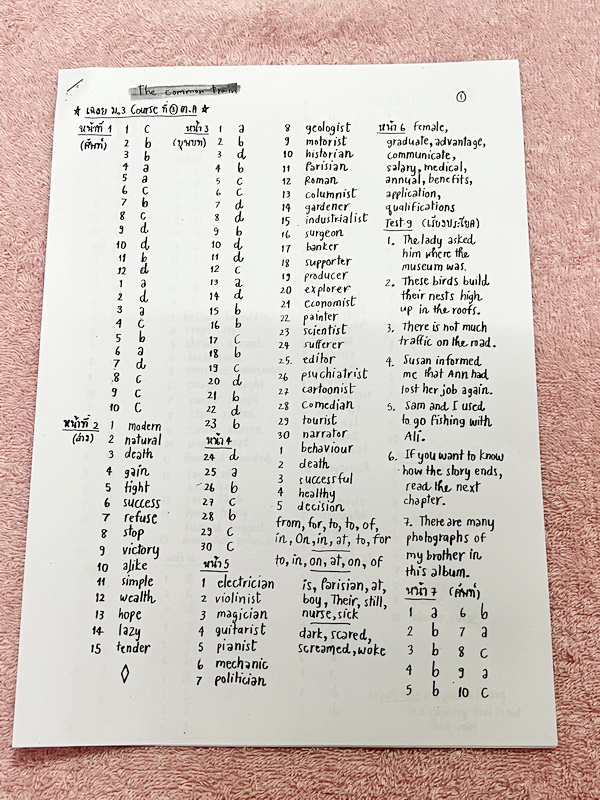 The common train
①
★ เฉลย ม.3 Course ที่ ③ ต.A ★
หน้าที่ 1 1 c
(ศัพท์) 2 b
3 b
4 a
5 a
6 c
7 b
8 c
9 d
10 d
11 b
12 d
1 a
2 d
3 a
4 c
5 b
6 a
7 d
8 c
9 c
10 c
หน้าที่ 2 1 modern
2 natural
3 death
4 gain
5 tight
6 success
7 refuse
8 stop
9 victory
10 alike
11 simple
12 wealth
13 hope
14 lazy
15 tender
หน้า 3 1 a
(บุพบท) 2 b
3 d
4 b
5 c
6 c
7 d
8 d
9 b
10 d
11 d
12 c
13 a
14 d
15 b
16 b
17 c
18 b
19 c
20 d
21 b
22 d
23 b
หน้า 4
24 d
25 a
26 b
27 c
28 b
29 c
30 c
หน้า 5
1 electrician
2 violinist
3 magician
4 guitarist
5 pianist
6 mechanic
7 politician
8 geologist
9 motorist
10 historian
11 Parisian
12 Roman
13 columnist
14 gardener
15 industrialist
16 surgeon
17 banker
18 supporter
19 producer
20 explorer
21 economist
22 painter
23 scientist
24 sufferer
25. editor
26 psychiatrist
27 cartoonist
28 comedian
29 tourist
30 narrator
1 behaviour
2 death
3 successful
4 healthy
5 decision
from, for, to, to, of,
in, On, in, at, to, for
to, in, on, at, on, of
is, Parisian, at,
boy, Their, still,
nurse, sick
dark, scared,
screamed, woke
หน้า 6 female,
graduate, advantage,
communicate,
salary, medical,
annual, benefits,
application,
qualifications
Test 9 (เรียงประโยค)
1. The lady asked
him where the
museum was.
2. These birds build
their nests high
up in the roofs.
3. There is not much
traffic on the road.
4. Susan informed
me that Ann had
lost her job again.
5. Sam and I used
to go fishing with
Ali.
6. If you want to know
how the story ends,
read the next
chapter.
7. There are many
photographs of
my brother in
this album.
หน้า 7 (ศัพท์)
1 a 6 b
2 b 7 a
3 b 8 c
4 b 9 a
5 b 10 c